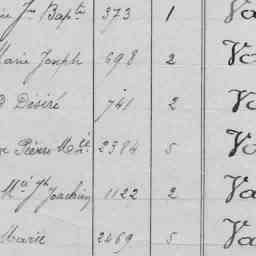 Jn Bapte 373 1 Va
Marie Joseph 698 2 Va
Désiré 741 2 Va
Pierre Mie 2384 5 Va
Mie Jh Joachim 1122 2 Va
Marie 2469 5 Va